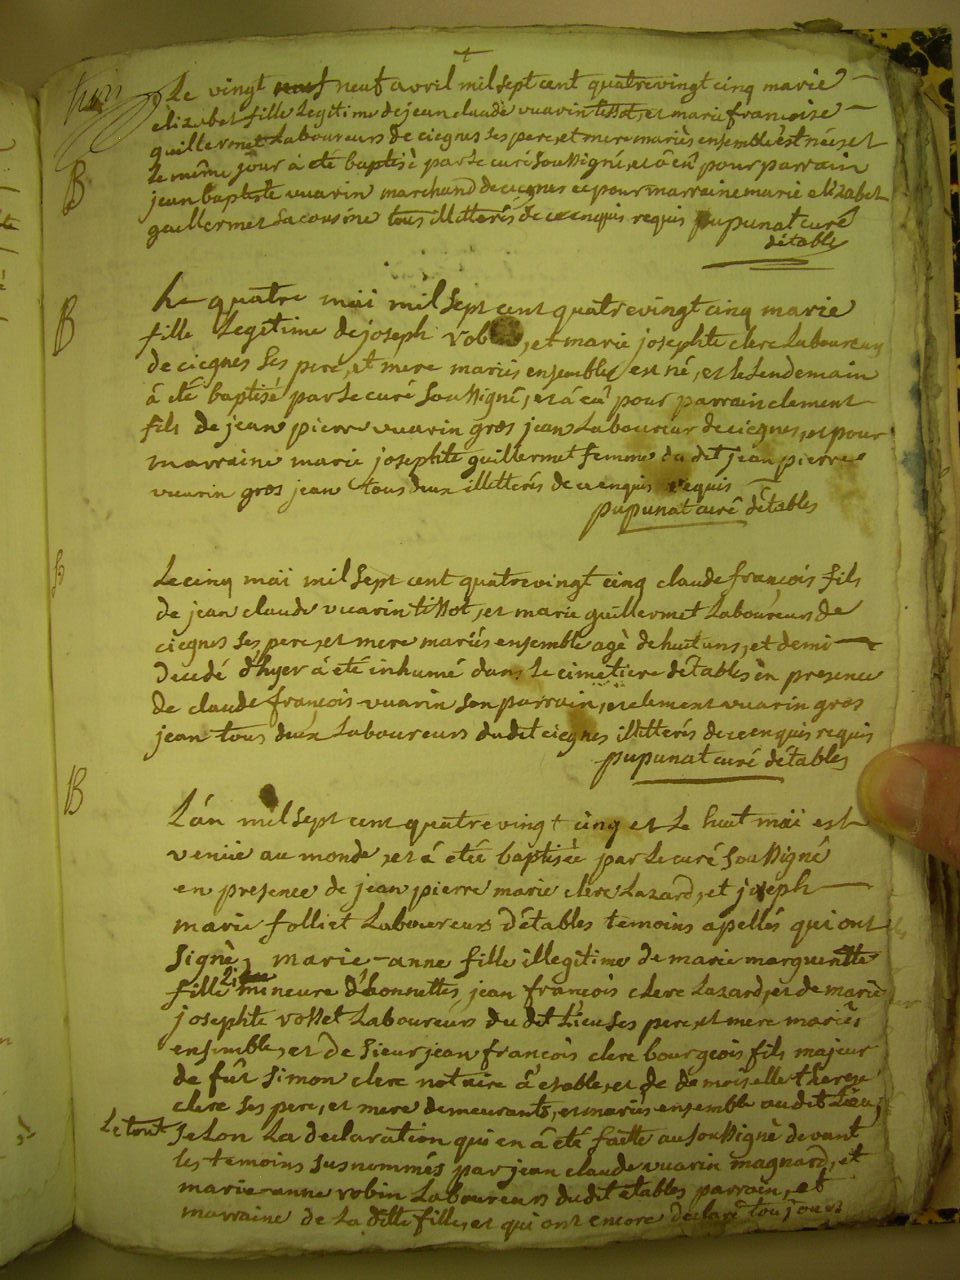 +
Le vingt neuf avril mil sept cent quatrevingt cinq marie
elizabet fille Legitime de jean claude vuarin tissot, et marie francoise
guillermet Laboureurs de ciegnes ses pere, et mere mariés ensemble est née, et
Le même jour à eté baptisé par Le curé soussigné, et à eû pour parrain
jean baptiste vuarin marchand de ciegnes et pour marraine marie elizabet
guillermet sa cousine tous illitterés de ce enquis requis pupunat curé
détables
B
Le quatre mäi mil sept cent quatrevingt cinq marie
fille Legitime de joseph, et marie josephte clerc Laboureurs
de ciegnes ses pere, et mere mariés ensembles est né, et le Lendemain
à eté baptisé par Le curé soussigné, et à eû pour parrain clement
fils de jean pierre vuarin gros jean Laboureur de ciegnes, et pour
marraine marie josephte guillermet femme du dit jean pierre
vuarin gros jean tous deux illitterés de ce enquis requis
pupunat curé détables
B
Le cinq mäi mil sept cent quatrevingt cinq claude françois fils
de jean claude vuarin tissot, et marie guillermet Laboureurs de
ciegnes ses pere, et mere mariés ensemble agè de huit ans, et demi
Decedé d'hyer à eté inhumé dans Le cimetiere détables en presence
de claude françois vuarin son parrain, et clement vuarin gros
jean tous deux Laboureurs dudit ciegnes illitterés de ce enquis requis
pupunat curé détables
B
L'án mil sept cent quatrevingt cinq et Le huit mäi est
venüe au monde, et à etée baptisée par Le curé soussigné
en presence de jean pierre marie clerc Lazard, et joseph
marie folliet Laboureurs d'étables temoins apellés qui ont
signè, marie-anne fille illegitime de marie margueritte
fille mineure d'honnettes jean françois clerc Lazard, et de marie
josephte vosset Laboureurs du dit Lieu ses pere, et mere mariés
ensemble, et de sieur jean françois clerc bourgeois fils majeur
de fût simon clerc notaire à étable, et de demoiselle therese
clerc ses pere, et mere demeurants, et mariés ensemble au dit Lieu,
Le tout selon La declaration qui en à été faitte au soussigné devant
les temoins susnommés par jean claude vuarin magnard, et
marie-anne robin Laboureurs dudit etables parrain, et
marraine de La ditte fille, et qui ont encore declaré toujours